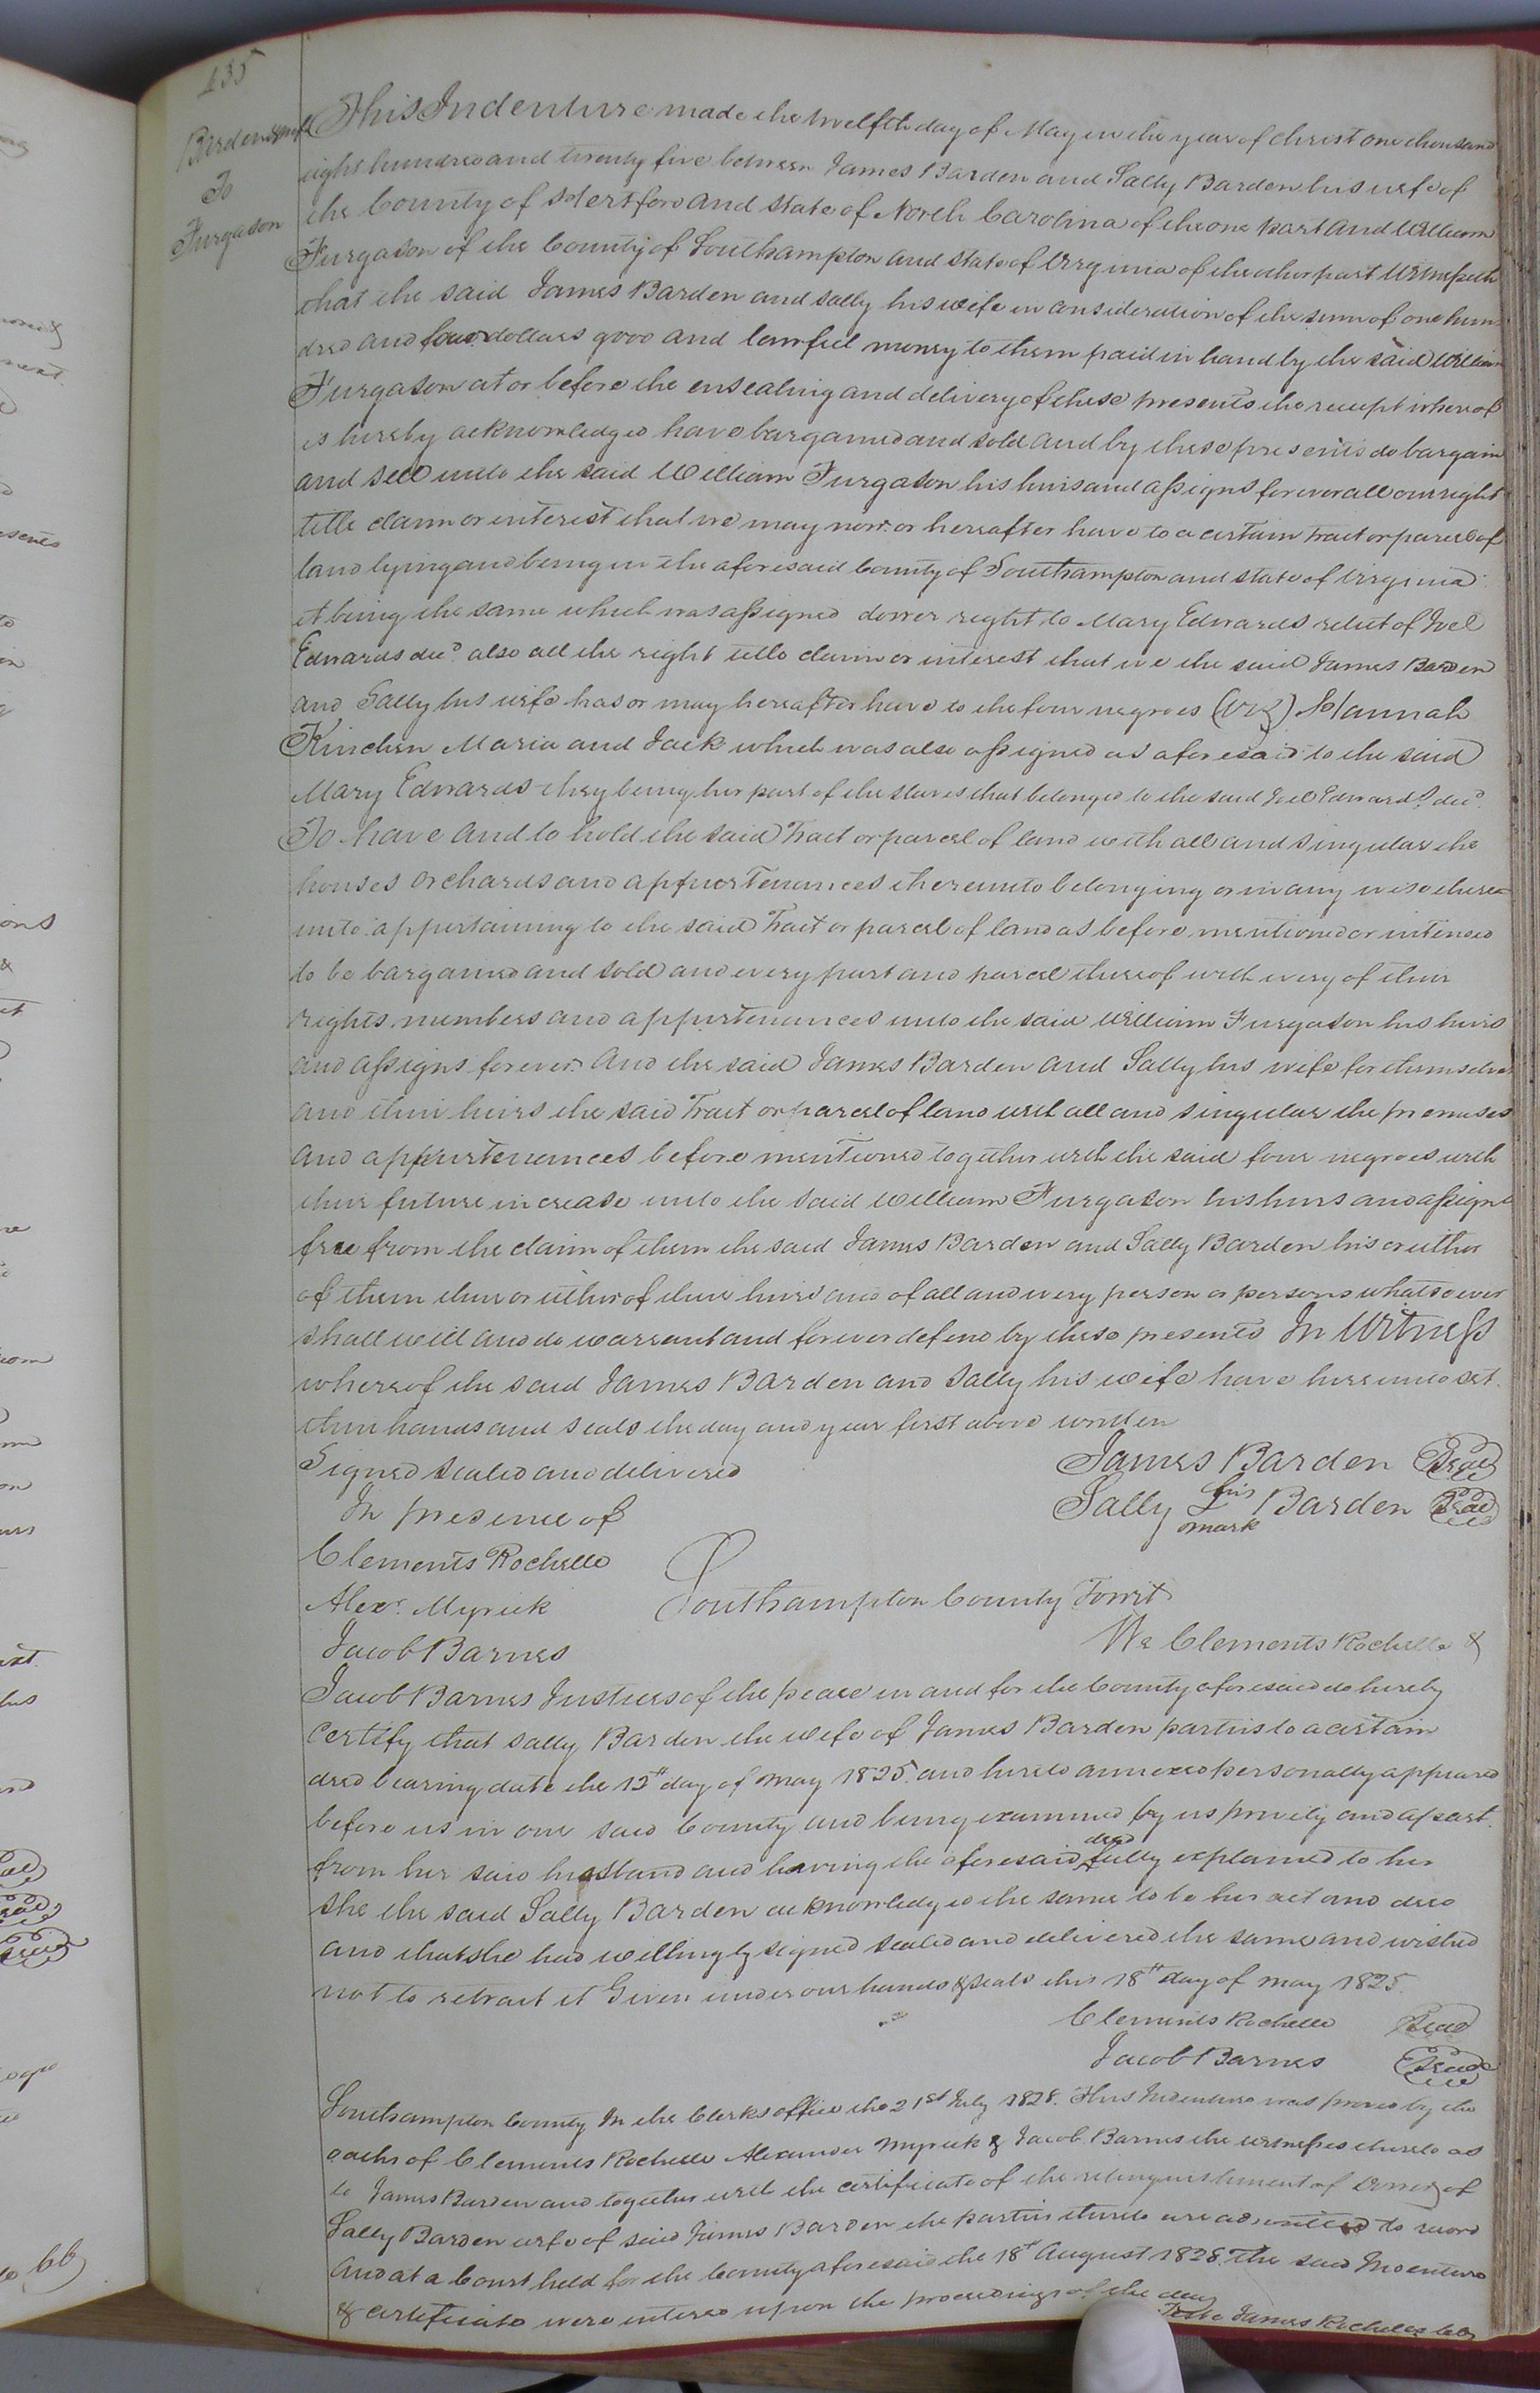 435
Barden & wife
To
Furgason
This Indenture made the twelfth day of May in the year of Christ one thousand
eight hundred and twenty five between James Barden and Sally Barden his wife of
the County of Hertford and State of North Carolina of the one part and William
Furgason of the County of Southampton and State of Virginia of the other part Witnesseth
that the said James Barden and Sally his wife in consideration of the sum of one hun
dred and four dollars good and lawful money to them paid in hand by the said William
Furgason at or before the ensealing and delivery of these presents the receipt whereof
is hereby acknowledged have bargained and sold and by these presents do bargain
and sell unto the said William Furgason his heirs and assigns forever all our right
title claim or interest that we may now or hereafter have to a certain Tract or parcel of
land lying and being in the aforesaid County of Southampton and State of Virginia
it being the same which was assigned dower right to Mary Edwards relict of Joel
Edwards decd. also all the right title claim or interest that we the said James Barden
and Sally his wife has or may hereafter have to the four negroes (viz) Hannah
Kinchen Maria and Jack which was also assigned as aforesaid to the said
Mary Edwards they being her part of the slaves that belonged to the said Joel Edwards decd.
To have and to hold the said Tract or parcel of land with all and singular the
houses orchards and appurtenances thereunto belonging or in any wise there
unto appertaining to the said Tract or parcel of land as before mentioned or intended
to be bargained and sold and every part and parcel thereof with every of their
rights members and appurtenances unto the said William Furgason his heirs
and assigns forever. And the said James Barden and Sally his wife for themselves
and their heirs the said Tract or parcel of land with all and singular the premises
and appurtenances before mentioned together with the said four negroes with
their future increase unto the said William Furgason his heirs and assigns
free from the claim of them the said James Barden and Sally Barden his or either
of them their or either of their heirs and of all and every person or persons whatsoever
shall will and do warrant and forever defend by these presents In Witness
whereof the said James Barden and Sally his wife have hereunto set
their hands and seals the day and year first above written
Signed sealed and delivered
James Barden Seal
In presence of
Sally his mark Barden Seal
Clements Rochelle
Alexr. Myrick
Southampton County Towit
Jacob Barnes
We Clements Rochelle &
Jacob Barnes Justices of the peace in and for the County aforesaid do hereby
certify that Sally Barden the wife of James Barden parties to a certain
deed bearing date the 12th day of May 1825. and hereto annexed personally appeared
before us in our said County and being examined by us privily and apart
from her said husband and having the aforesaid deed fully explained to her
she the said Sally Barden acknowledged the same to be her act and deed
and that she had willingly signed sealed and delivered the same and wished
not to retract it Given under our hands & seals this 18th day of May 1825.
Clements Rochelle Seal
Jacob Barnes Seal
Southampton County In the Clerks office the 21st July 1828. This Indenture was proved by the
oaths of Clements Rochelle Alexander Myrick & Jacob Barnes the witnesses thereto as
to James Barden and together with the certificate of the relinquishment of Dower of
Sally Barden wife of said James Barden the parties thereto are admitted to record
And at a Court held for the County aforesaid the 18th August 1828. The said Indenture
& certificate were entered upon the proceedings of the day
Teste James Rochelle CC